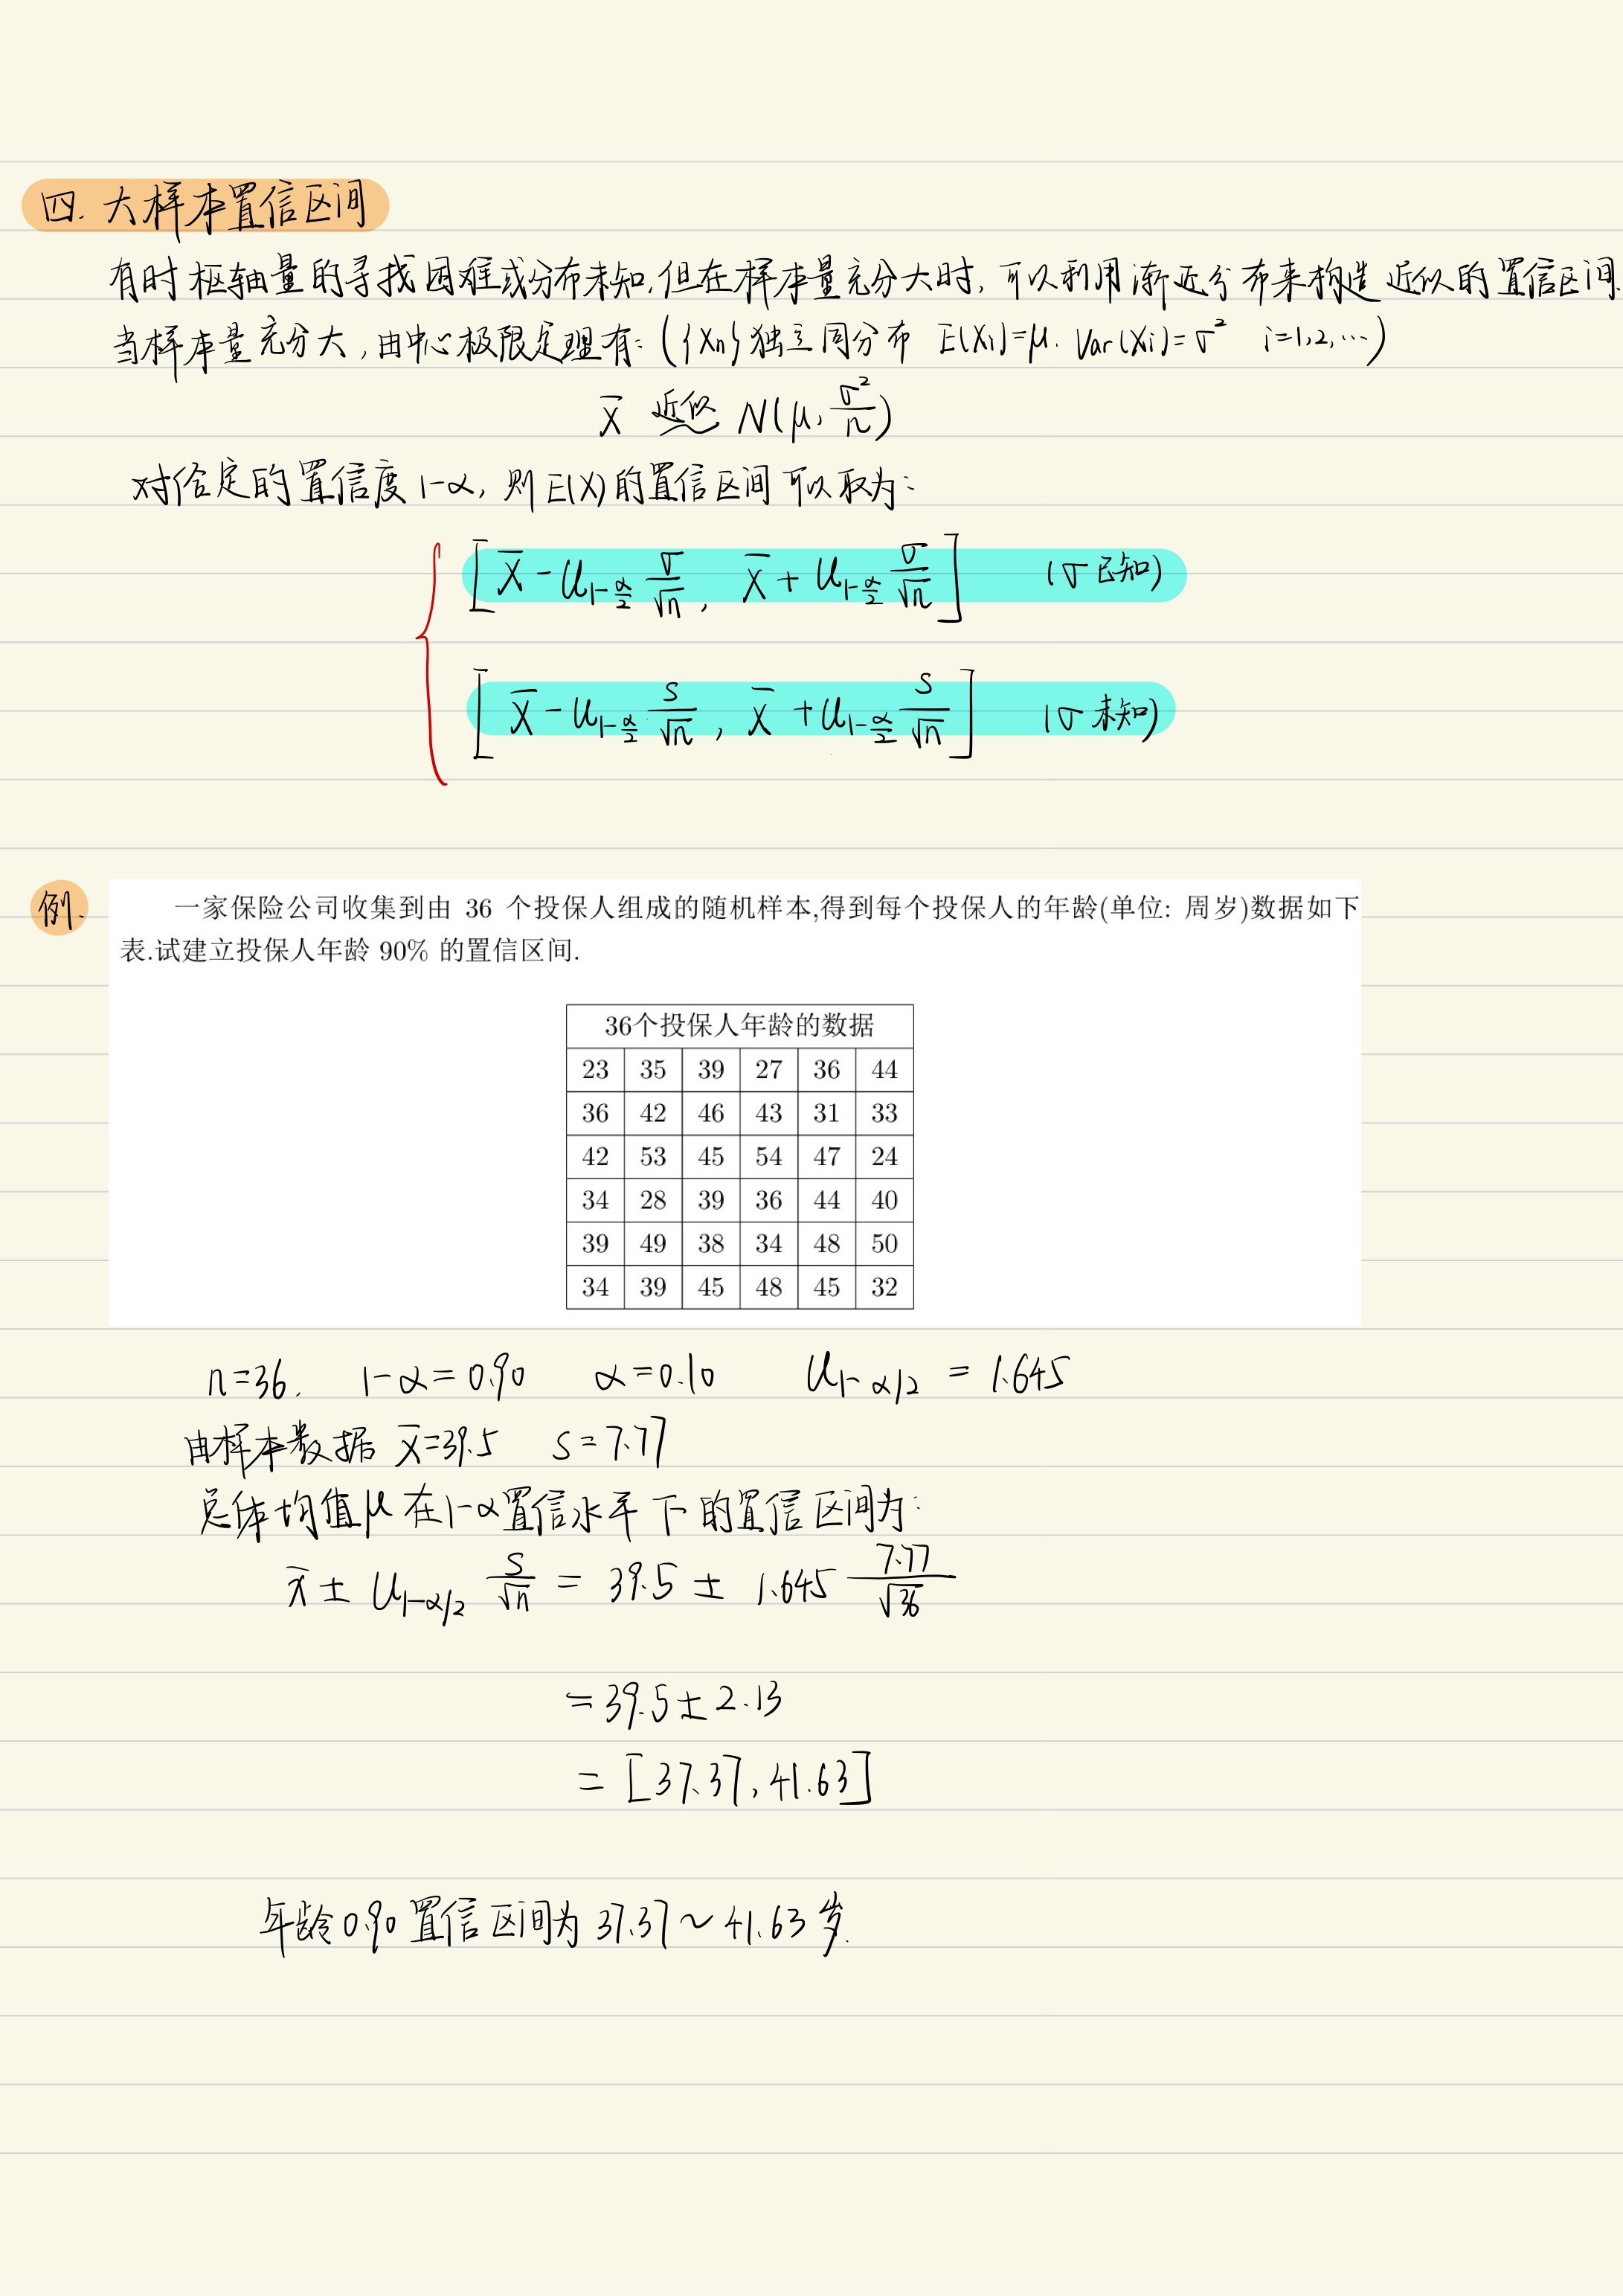 四. 大样本置信区间
有时枢轴量的寻找困难或分布未知,但在样本量充分大时, 可以利用渐近分布来构造近似的置信区间.
当样本量充分大,由中心极限定理有: ({Xn}独立同分布 E(Xi)=μ. Var(Xi)=σ² i=1,2,⋯)
X̄ 近似 N(μ, σ²/n)
对给定的置信度1-α, 则E(X)的置信区间可以取为:
[X̄ - U_{1-α/2} σ/√n, X̄ + U_{1-α/2} σ/√n] (σ已知)
[X̄ - U_{1-α/2} S/√n, X̄ + U_{1-α/2} S/√n] (σ未知)
例. 一家保险公司收集到由 36 个投保人组成的随机样本,得到每个投保人的年龄(单位: 周岁)数据如下
表.试建立投保人年龄 90% 的置信区间.
36个投保人年龄的数据
23 35 39 27 36 44
36 42 46 43 31 33
42 53 45 54 47 24
34 28 39 36 44 40
39 49 38 34 48 50
34 39 45 48 45 32
n=36. 1-α=0.90 α=0.10 U_{1-α/2} = 1.645
由样本数据 x̄=39.5 S=7.77
总体均值μ在1-α置信水平下的置信区间为:
x̄ ± U_{1-α/2} S/√n = 39.5 ± 1.645 7.77/√36
= 39.5 ± 2.13
= [37.37, 41.63]
年龄0.90置信区间为 37.37～41.63岁.